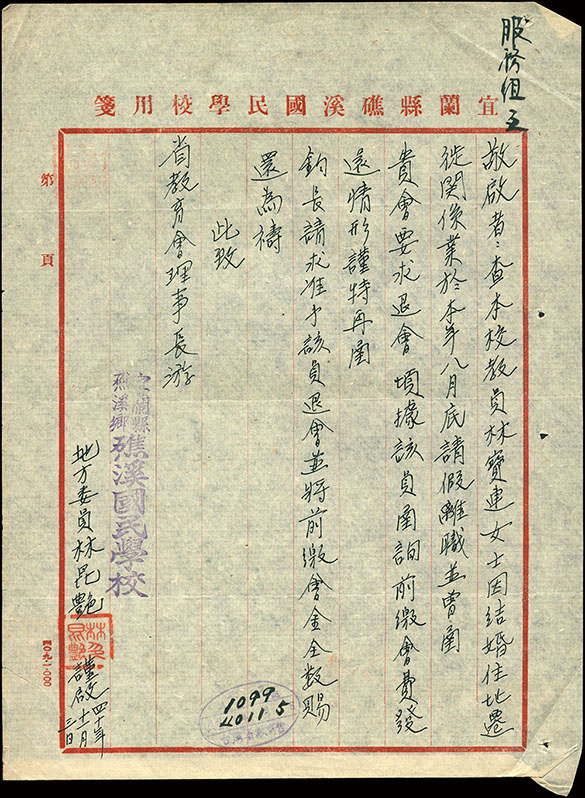 服務組
宜蘭縣礁溪國民學校用箋
敬啟者：查本校教員林寶連女士因結婚住址遷
徙関係業於本年八月底請假離職並曾函
貴會要求退會頃據該員函詢前繳會費發
還情形謹特再函
鈞長請求准予該員退會並將前繳會金全数賜
還為禱
此致
省教育會理事長游
宜蘭縣
礁溪鄉
礁溪國民學校
地方委員林昆艷
謹啟
四十年
十一月
三日
第 頁
1099
4011 5